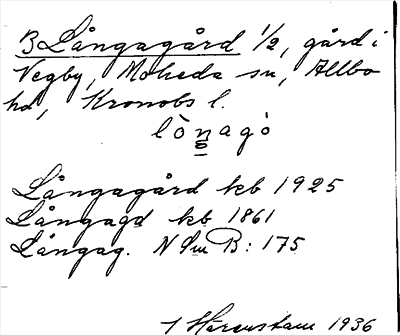 B Långagård 1/2, gård i
Vegby, Moheda sn, Allbo
hd, Kronobs l.
lònagò
Långagård kb 1925
Långagd kb 1861
Långag. NSm B: 175
Härenstam 1936